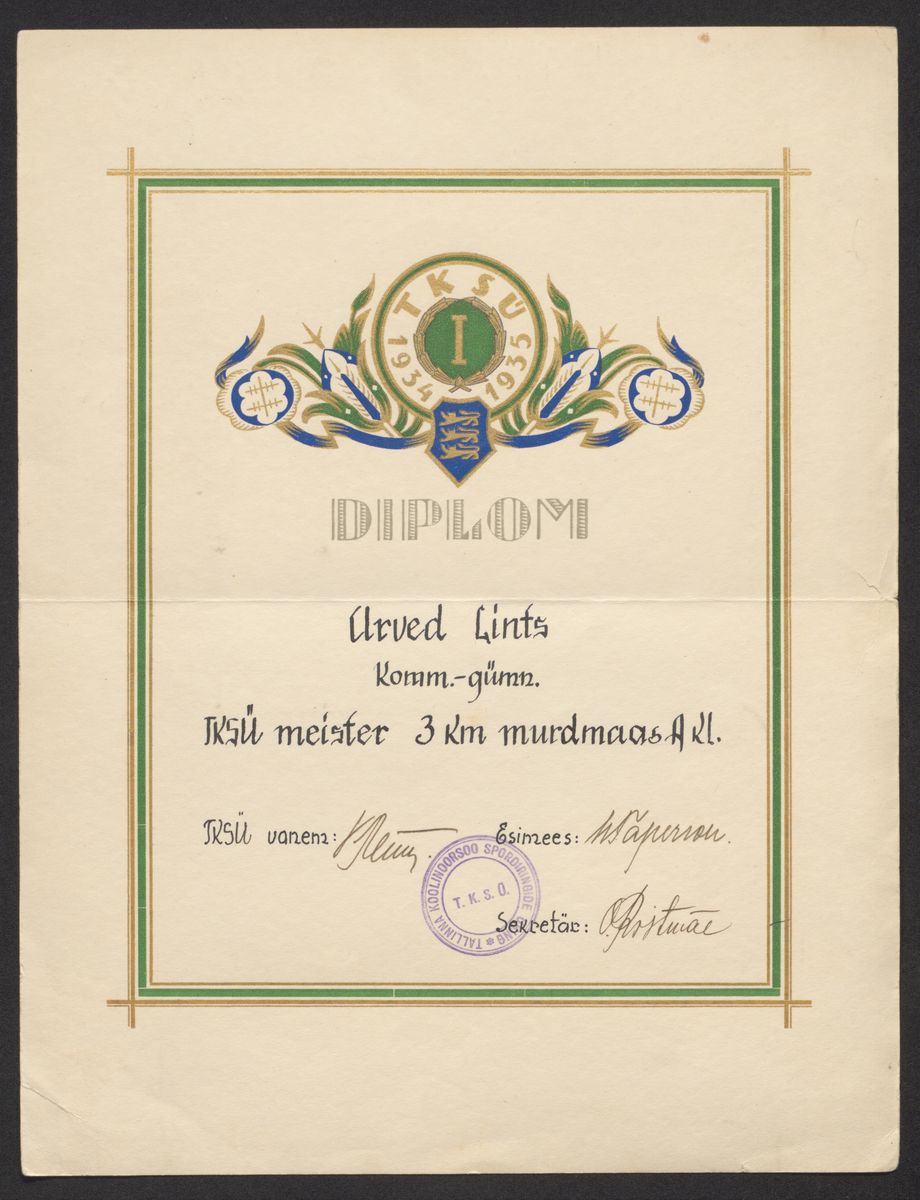 TKSÜ
1934 1935
I
DIPLOM
Urved Lints
Komm.-gümn.
TKSÜ meister 3 km murdmaas A kl.
TKSÜ vanem:
Esimees:
TALLINNA KOOLINOORSOO SPORDIRINGIDE ÜHING *
T. K. S. Ü.
Sekretär: O. Rostmäe